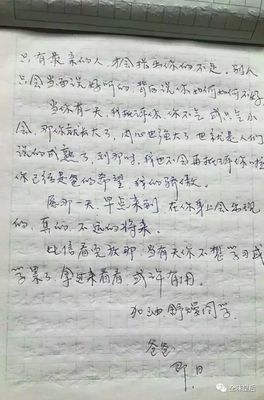 只有最亲的人，才会指出你的不是，别人
只会当面说好听的，背面说你如何如何不好。
当你有一天，我批评你，你不气或只气小
会，那你就长大了，内心也强大了也就是人们
说的成熟了，到那时，我也不会再批评你，
你已经是爸的希望，我的骄傲。
愿那一天早点来到，在你身上会出现
的，真的，不远的将来。
此信看完放那，当有天你不想学习或
学累了，拿过来看看，或许有用。
加油 同学
爸爸
即日